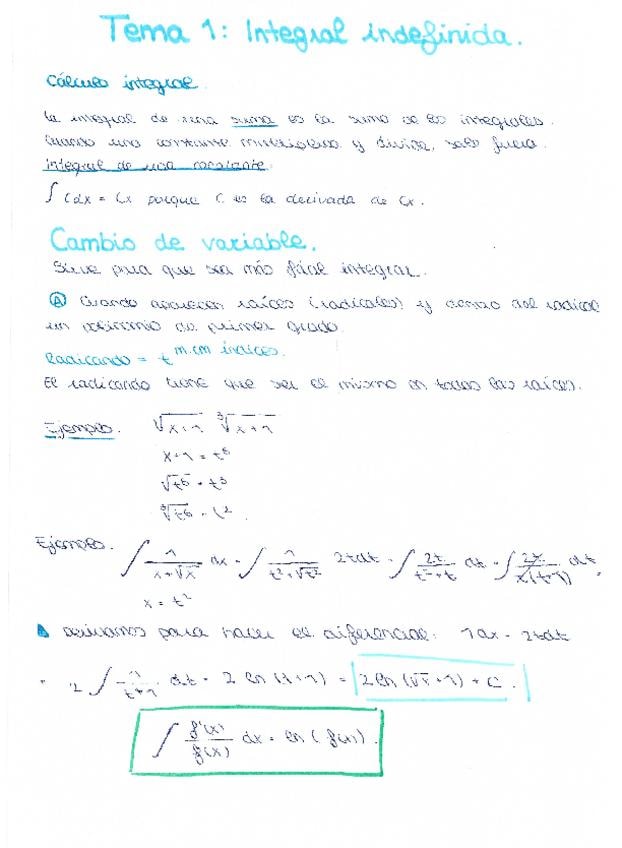 Tema 1: Integral indefinida.
Cálculo integral.
La integral de una suma es la suma de las integrales.
Cuando una constante multiplica y divide, sale fuera.
Integral de una constante.
∫ C dx = Cx porque C es la derivada de Cx.
Cambio de variable.
Sirve para que sea más fácil integrar.
Ⓐ Cuando aparecen raíces (radicales) y dentro del radical
un polinomio de primer grado.
Radicando = t^m.c.m índices.
El radicando tiene que ser el mismo en todas las raíces.
Ejemplo. √x+1 ∛x+1
x+1 = t⁶
√t⁶ = t³
∛t⁶ = t².
Ejemplo. ∫ 1/(x+√x) dx = ∫ 1/(t²+√t²) 2t dt = ∫ 2t/(t²+t) dt = ∫ 2t/(t(t+1)) dt,
x = t²
derivamos para hacer el diferencial: 1dx = 2tdt
= 2 ∫ 1/(t+1) dt = 2 ln (t+1) = 2 ln (√x+1) + C.
∫ f'(x)/f(x) dx = ln (f(x)).